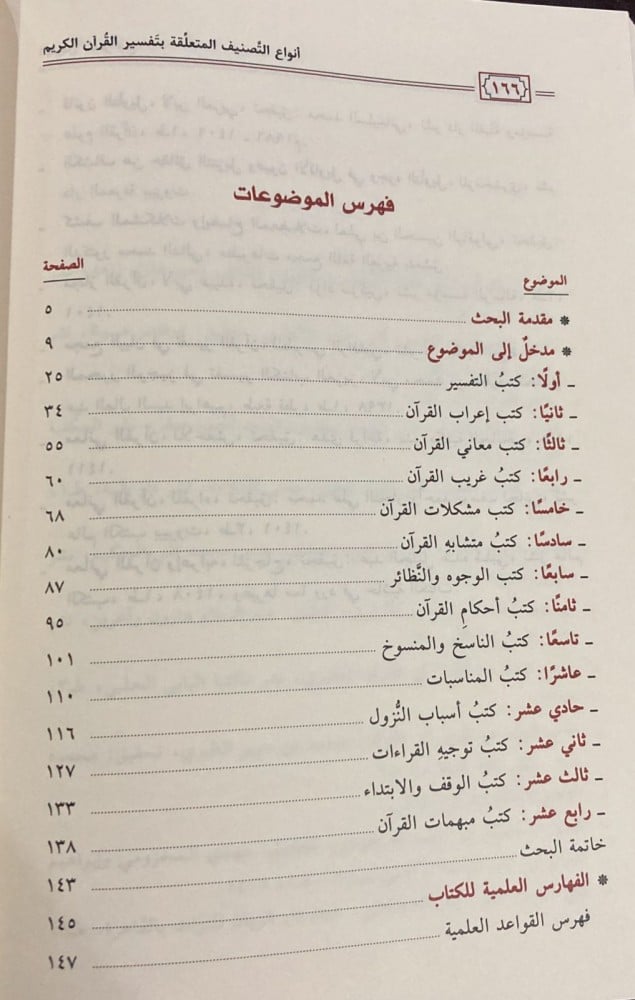 أنواع التَّصنيف المتعلِّقة بتَفسير القُرآن الكريم
١٦٦
فهرس الموضوعات
الموضوع الصفحة
* مقدمة البحث ٥
* مدخلٌ إلى الموضوع ٩
- أولًا: كتبُ التفسير ٢٥
- ثانيًا: كتب إعراب القرآن ٣٤
- ثالثًا: كتب معاني القرآن ٥٥
- رابعًا: كتبُ غريب القرآن ٦٠
- خامسًا: كتب مشكلات القرآن ٦٨
- سادسًا: كتبُ متشابهِ القرآن ٨٠
- سابعًا: كتب الوجوه والنَّظائر ٨٧
- ثامنًا: كتبُ أحكامِ القرآن ٩٥
- تاسعًا: كتبُ الناسخ والمنسوخ ١٠١
- عاشرًا: كتبُ المناسبات ١١٠
- حادي عشر: كتبُ أسباب النُّزول ١١٦
- ثاني عشر: كتبُ توجيهِ القراءات ١٢٧
- ثالث عشر: كتبُ الوقف والابتداء ١٣٣
- رابع عشر: كتبُ مبهمات القرآن ١٣٨
خاتمة البحث ١٤٣
* الفهارس العلمية للكتاب ١٤٥
فهرس القواعد العلمية ١٤٧